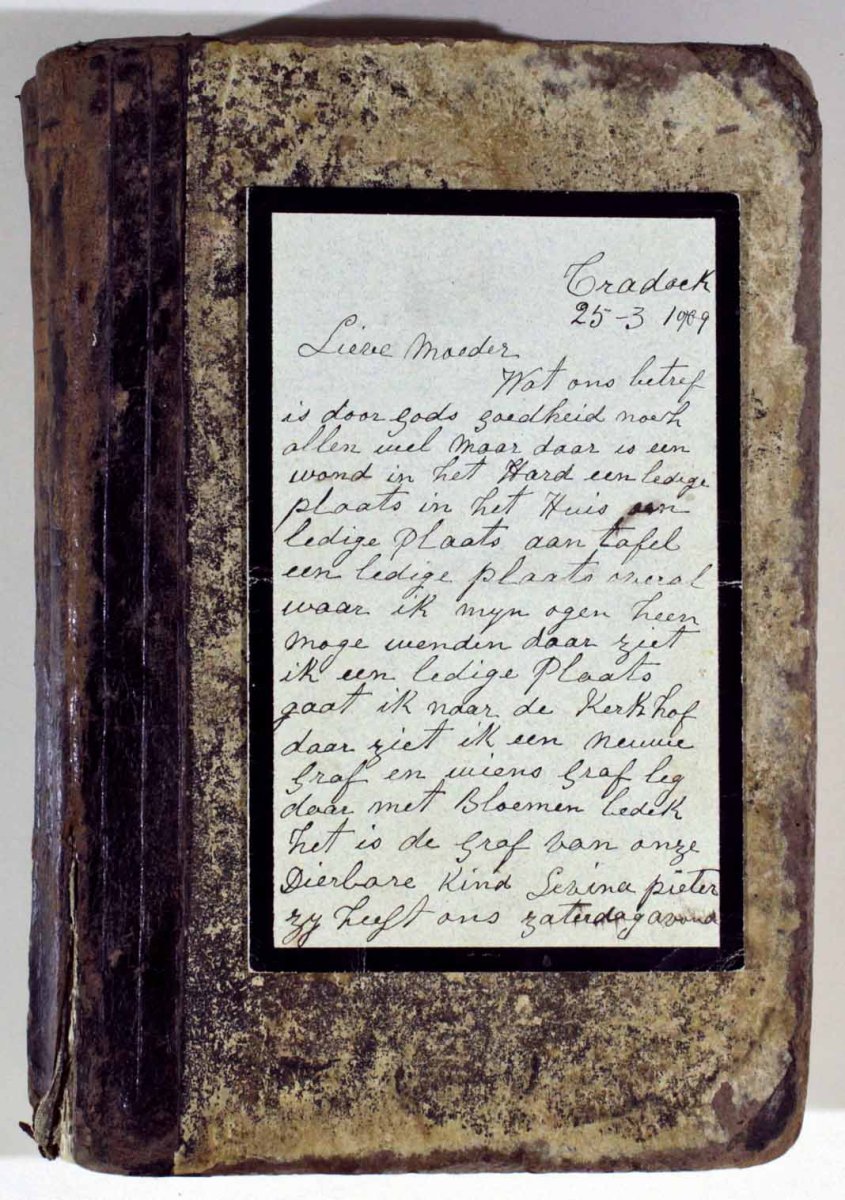 Cradock
25-3 1909
Lieve Moeder
Wat ons betref
is door gods goedheid noch
allen wel maar daar is een
wond in het Hard een ledige
plaats in het Huis een
ledige Plaats aan tafel
een ledige plaats overal
waar ik myn ogen heen
moge wenden daar ziet
ik een ledige Plaats
gaat ik naar de Kerkhof
daar ziet ik een neuwe
Graf en wiens Graf leg
daar met Bloemen bedek
het is de Graf van onze
Dierbare Kind Levina pieter
zy heeft ons zaterdag avond